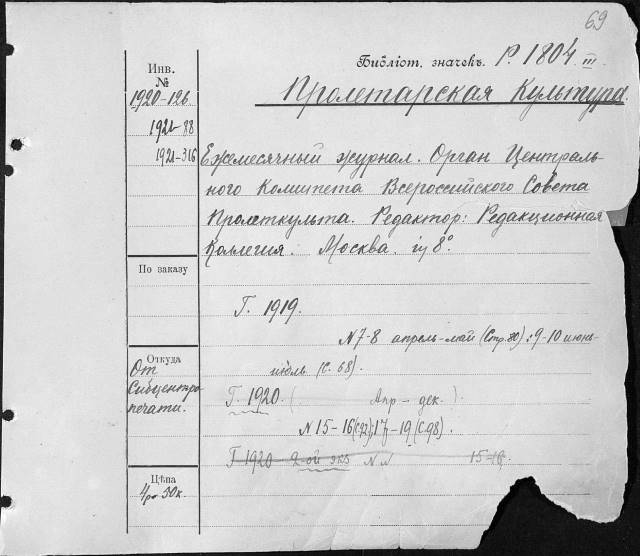 69
Библіот. значекъ. Р. 1804 III
Пролетарская Культура.
Инв.
№
1920-126
1921-88
1921-316
Ежемесячный журнал. Орган Централь-
ного Комитета Всероссийского Совета
Пролеткульта. Редактор: Редакционная
Коллегия. Москва. 8°.
По заказу
Г. 1919.
N 7-8 апрель-май (Стр. 80); 9-10 июнь-
июль (с. 68).
Откуда
От
Сибцентро-
печати.
Г. 1920. ( Апр - дек. )
N 15-16 (с. 92); 17-19 (с. 98).
Г 1920 2-ой экз N N 15-16.
Цѣна
4р 50к.